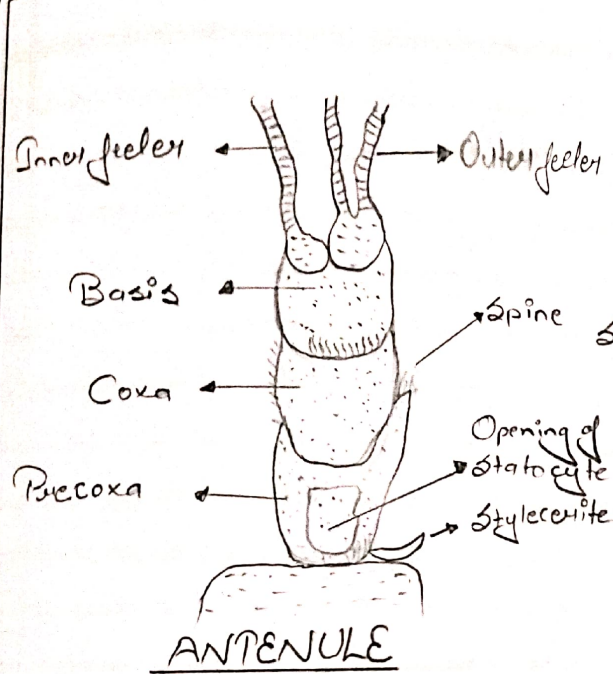 Inner feeler
Outer feeler
Basis
Spine
Coxa
Opening of
Statocyte
Precoxa
Stylecerite
ANTENULE